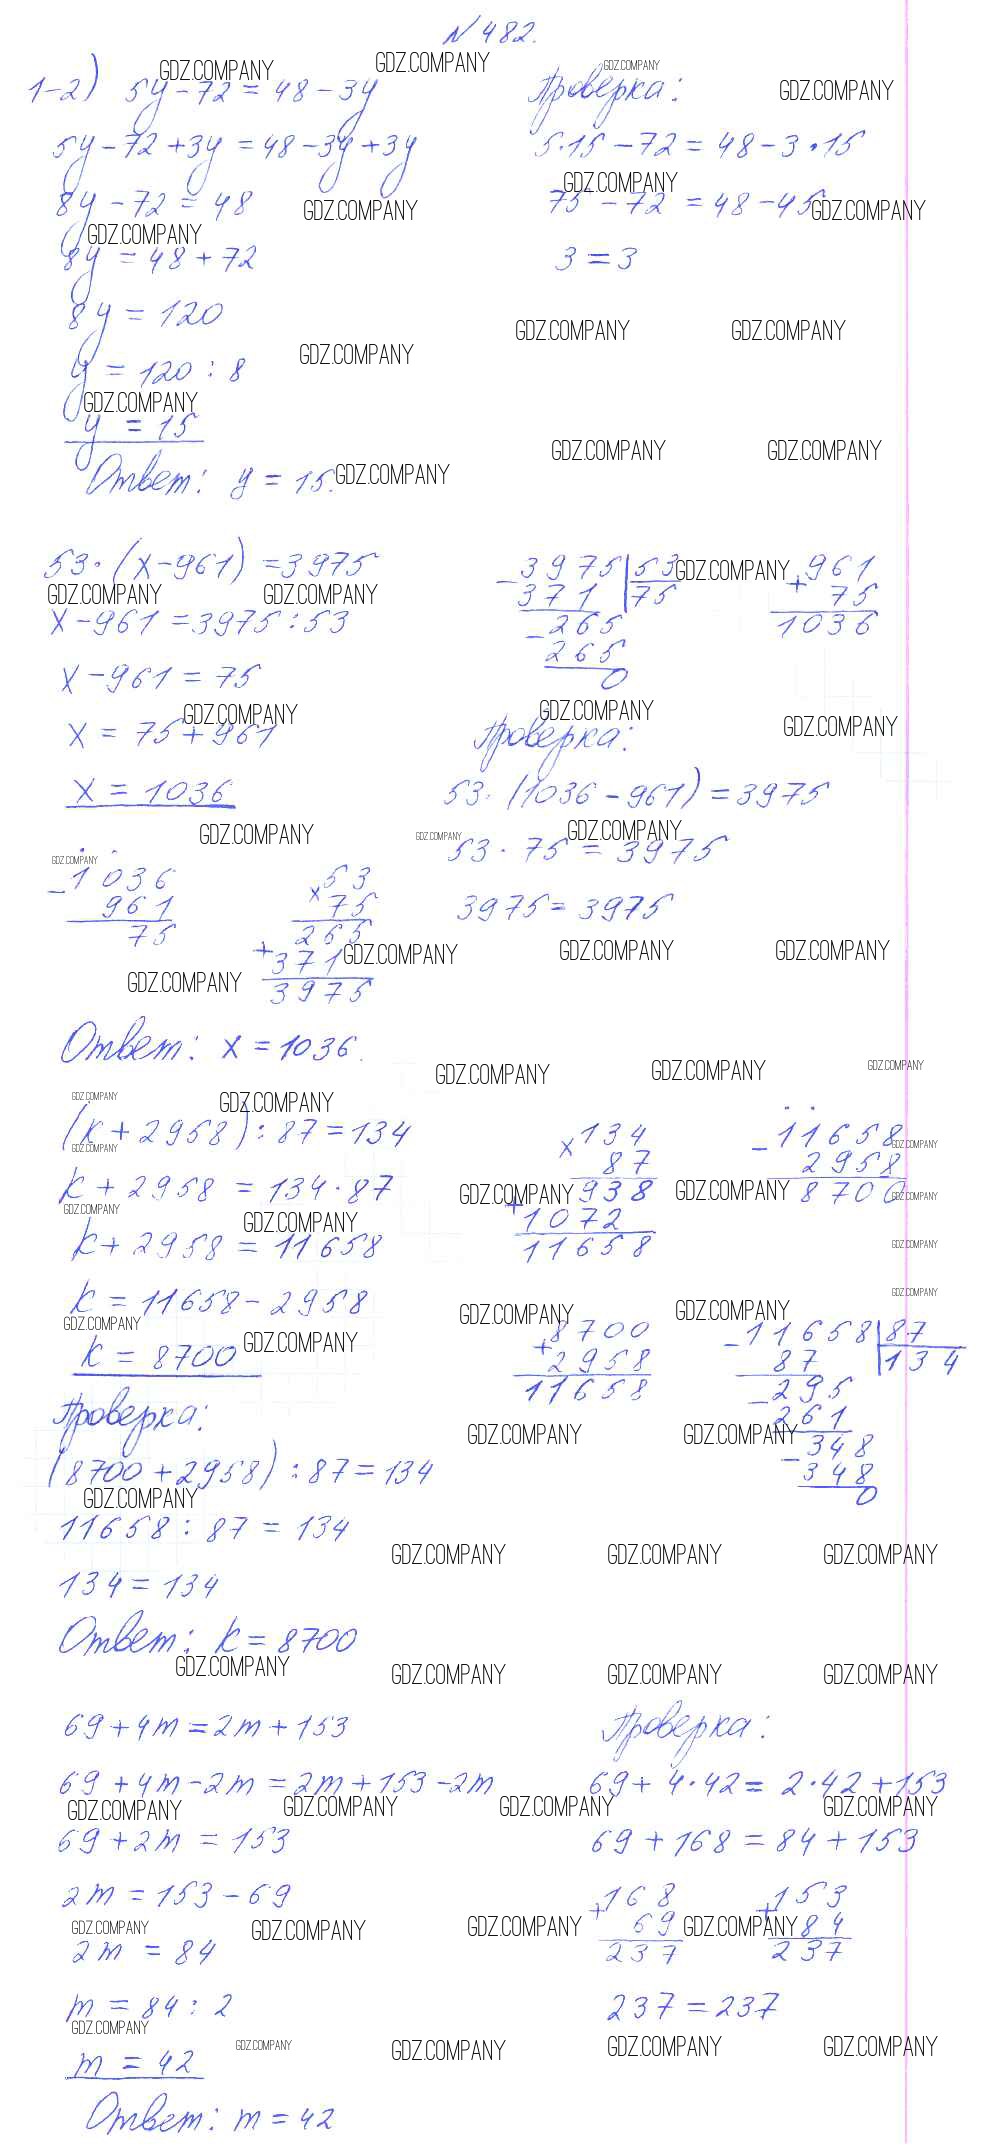 №482.
1-2) 5y-72=48-3y
5y-72+3y=48-3y+3y
8y-72=48
8y=48+72
8y=120
y=120:8
y=15
Ответ: y=15.
Проверка:
5·15-72=48-3·15
75-72=48-45
3=3
53·(x-961)=3975
x-961=3975:53
x-961=75
x=75+961
x=1036
-3975|53
371 |75
-265
265
0
+961
75
1036
Проверка:
53·(1036-961)=3975
53·75=3975
3975=3975
-1036
961
75
x53
75
265
+371
3975
Ответ: x=1036.
(k+2958):87=134
k+2958=134·87
k+2958=11658
k=11658-2958
k=8700
x134
87
938
+1072
11658
-11658
2958
8700
+8700
2958
11658
-11658|87
87 |134
-295
261
-348
348
0
Проверка:
(8700+2958):87=134
11658:87=134
134=134
Ответ: k=8700
69+4m=2m+153
69+4m-2m=2m+153-2m
69+2m=153
2m=153-69
2m=84
m=84:2
m=42
Ответ: m=42
Проверка:
69+4·42=2·42+153
69+168=84+153
+168
69
237
+153
84
237
237=237
GDZ.COMPANY